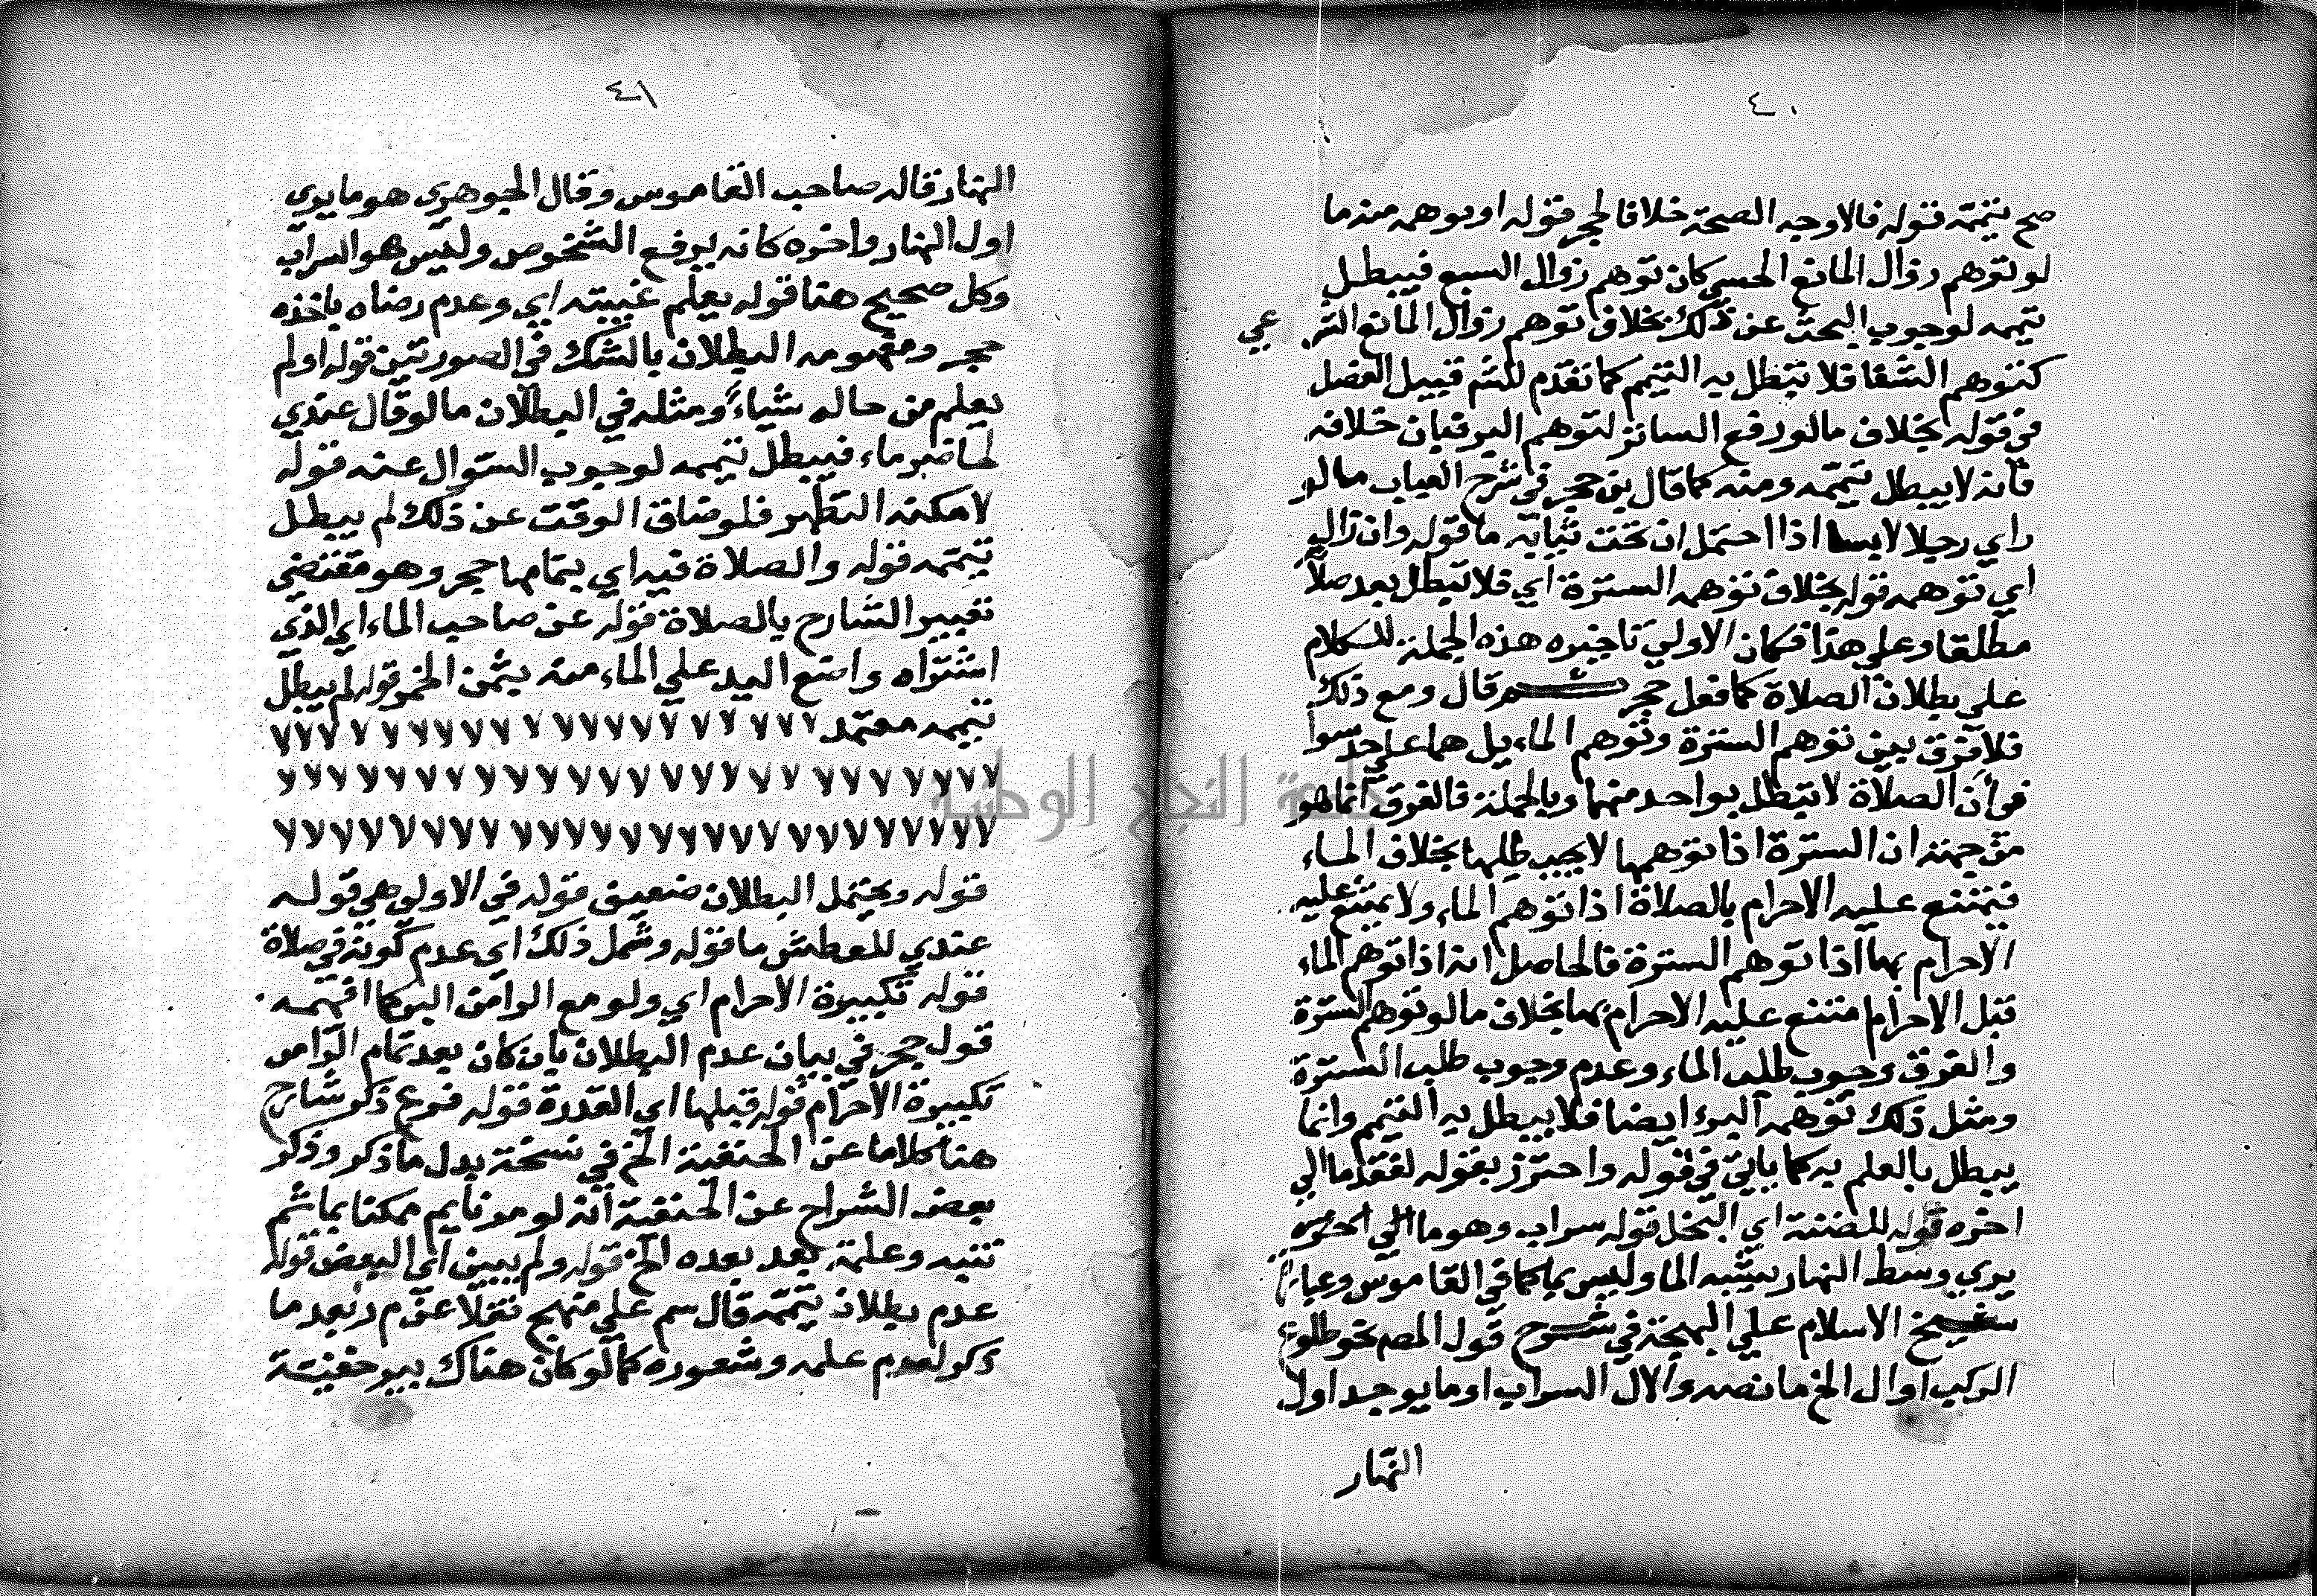 ٤٠
صح تيممه قوله فالاوجه الصحة خلافا لحجر قوله او توهمه منه ما
لو توهم زوال المانع الحسي كان توهم زوال السبع فيبطل
تيممه لوجوب البحث عن ذلك بخلاف توهم زوال المانع الشر عي
كتوهم الشفا فلا يبطل به التيمم كما تقدم للشم قبيل الفصل
في قوله بخلاف ما لو رفع الساتر لتوهم البرفبان خلافه
فانه لا يبطل تيممه ومنه كما قال بن حجر في شرح العباب ما لو
راي رجلا لابسا اذا احتمل ان تحت ثيابه ما قوله وان زال
اي توهمه قوله بخلاف توهمه السترة اي فلا تبطل بعد صلا
مطلقا وعلي هذا فكان الاولي تاخيره هذه الجملة للكلام
علي بطلان الصلاة كما فعل حجر قال ومع ذلك
فلا فرق بين توهم السترة وتوهم الماء بل هما علي حد سوا
في أن الصلاة لا تبطل بواحد منهما وبالجملة فالفرق انما هو
من جهة ان السترة اذا توهمها لا يجب طلبها بخلاف الماء
فيمتنع عليه الاحرام بالصلاة اذا توهم الماء ولا يمتنع عليه
الاحرام بها اذا توهم السترة فالحاصل انه اذا توهم الماء
قبل الاحرام امتنع عليه الاحرام بها بخلاف ما لو توهم السترة
والفرق وجوب طلب الماء وعدم وجوب طلب السترة
ومثل ذلك توهمه البرء ايضا فلا يبطل به التيمم وانما
يبطل بالعلم به كما ياتي في قوله واحترز بقوله لفقد ما الي
اخره قوله للضنة اي البخل قوله سراب وهو ما الي اخره
يري وسط النهار يشبه الما وليس بما كما في القاموس وعبا
شيخ الاسلام علي البهجة في شرح قول المصـ نحو طلوع
الركب او ال الخ ما نصه والال السراب او ما يوجد اول
النهار
٤١
النهار قاله صاحب القاموس وقال الجوهري هو ما يري
اول النهار واخره كانه يرفع الشخوص وليس هو السراب
وكل صحيح هنا قوله يعلم غيبته اي وعدم رضاه باخذه
حجر ومفهومه البطلان بالشك في الصورتين قوله او لم
يعلم من حاله شياء ومثله في البطلان ما لو قال عندي
لحاضر ماء فيبطل تيممه لوجوب السوال عنه قوله
لا مكنه التطهر فلو ضاق الوقت عن ذلك لم يبطل
تيممه قوله والصلاة فيه اي بتمامها حجر وهو مقتضي
تعبير الشارح بالصلاة قوله عن صاحب الماء اي الذي
اشتراه واضع اليد علي الماء منه بثمن الخمر قوله لم يبطل
تيممه معتمد
قوله ويحتمل البطلان ضعيف قوله في الاولي هي قوله
عندي للعطش ما قوله وشمل ذلك اي عدم كونه في صلاة
قوله تكبيرة الاحرام اي ولو مع الرا من اكبر كما افهمه
قول حجر في بيان عدم البطلان بان كان بعد تمام الرا من
تكبيرة الاحرام قوله قبلها اي القدرة قوله فرع ذكر شارح
هنا كلاما عن الحنفية الخ في نسخة بدل ما ذكر وذكر
بعض الشراح عن الحنفية انه لو مر نايم ممكنا بما ثم
تنبه وعلمه بعد بعده الخ قوله ولم يبين اي البعض قوله
عدم بطلان تيممه قال سم علي منهج نقلا عن م ر بعد ما
ذكر لعدم علمه وشعوره كما لو كان هناك بير خفية